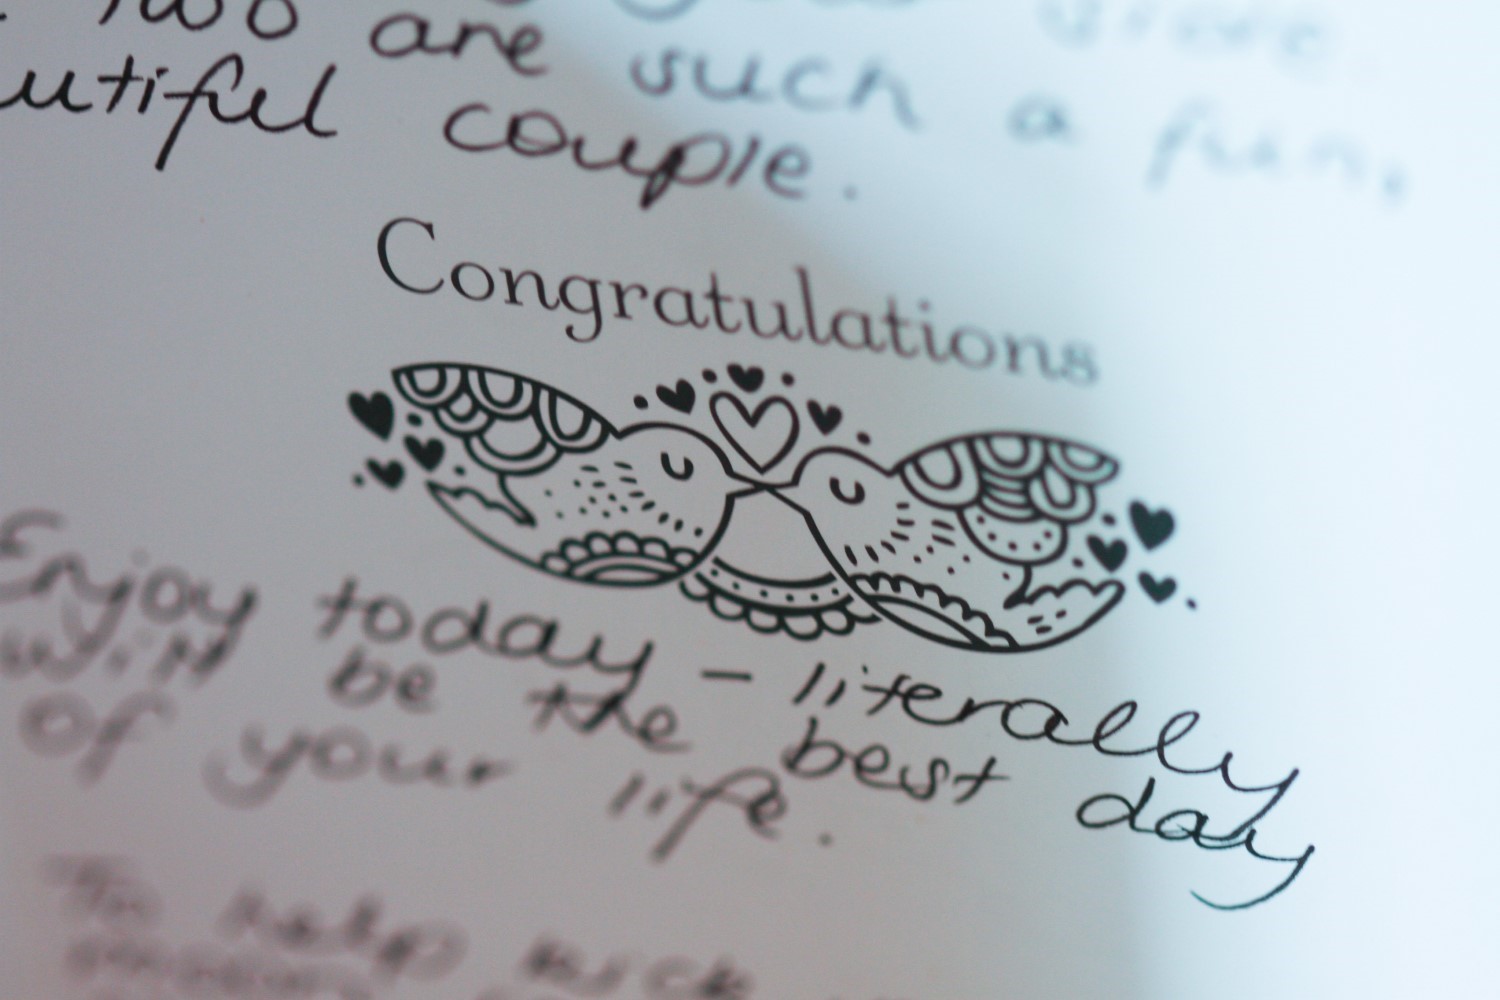 two are such a fun,
utiful couple.
Congratulations
Enjoy today - literally
will be the best day
of your life.
To help kick